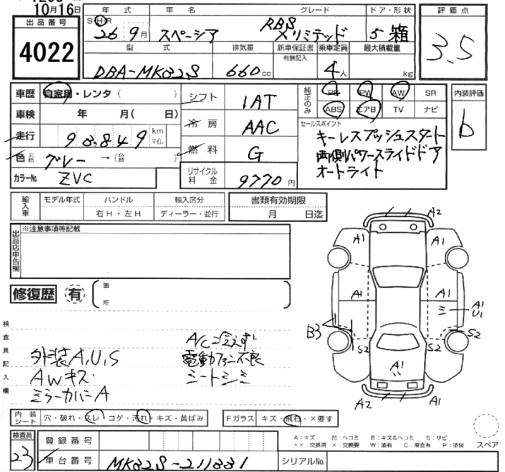 10月16日
出品番号
4022
年式 車名 グレード ドア・形状
S・H・R 26 9月 スペーシア RBS Xリミテッド 5 箱
型式 排気量 新車保証書 乗車定員 最大積載量
有 開記入
DBA-MK32S 660cc 4人 kg
評価点
3.5
車歴 自家用・レンタ( )
車検 年 月( 日)
走行 90,849 km マイル
色 グレー → ( )
カラーNo. ZVC
シフト IAT
冷房 AAC
燃料 G
リサイクル料金 9770円
純正のみ
PS PW AW SR
ABS エアB TV ナビ
セールスポイント
キーレスプッシュスタート
両側パワースライドドア
オートライト
内装評価
b
輸入車 モデル年式 ハンドル 輸入区分
右H・左H ディーラー・並行
書類有効期限
月 日迄
出品店申告欄
※注意事項等記載
修復歴 有
箇所
検査員記入欄
外装A,U,S
AWキズ
ミラーカバーA
A/C冷えず
電動ファン不良
シートシミ
A2
A1 A1
A1 A1
A1
U1
B3
S2 S2
A1
A2
内装シート 穴・破れ・スレ・コゲ・汚れ・キズ・黄ばみ
Fガラス キズ・飛石・×要す
A:キズ U:凹ミ B:キズ&凹ミ S:サビ
スペア
検査員
23
登録番号
車台番号 MK32S-211331
シリアルNo.